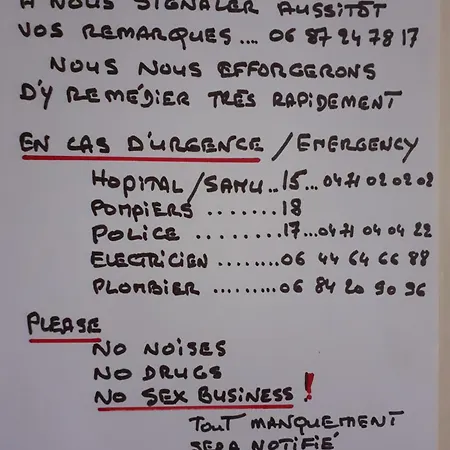 A NOUS SIGNALER AUSSITÔT
VOS REMARQUES.... 06 87 24 78 17
NOUS NOUS EFFORGERONS
D'Y REMÉDIER TRÈS RAPIDEMENT
EN CAS D'URGENCE / EMERGENCY
HOPITAL/SAMU..15...0471 02 02 02
POMPIERS .......18
POLICE .........17...0471 04 04 22
ELECTRICIEN .........06 44 64 66 88
PLOMBIER ..........06 84 20 90 96
PLEASE
NO NOISES
NO DRUGS
NO SEX BUSINESS !
TOUT MANQUEMENT
SERA NOTIFIÉ